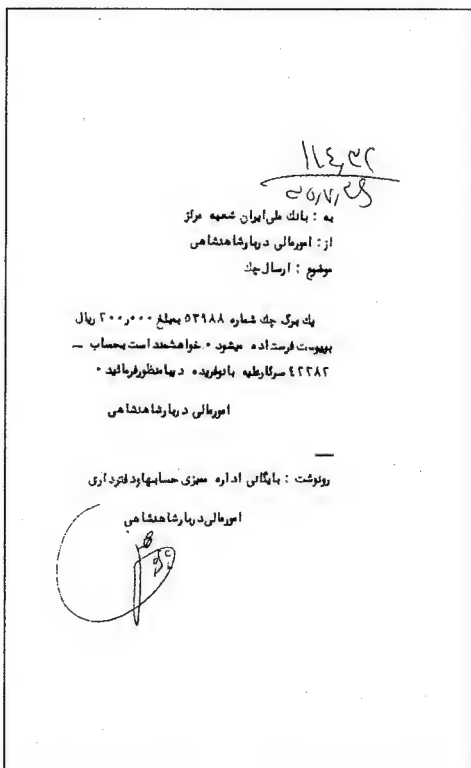 به : بانك ملی ایران شعبه مرکز
از : امورمالی دربارشاهنشاهی
موضوع : ارسال چك
یك برگ چك شماره ٥٣٩٨٨ بمبلغ ٢٠٠٫٠٠٠ ریال
بپیوست فرستاده میشود ٠ خواهشمند است بحساب ــ
٤٢٢٨٢ سرکارعلیه بانوفریده دیبا منظورفرمائید ٠
امورمالی دربارشاهنشاهی
رونوشت : بایگانی اداره ممیزی حسابها ودفترداری
امورمالی دربارشاهنشاهی